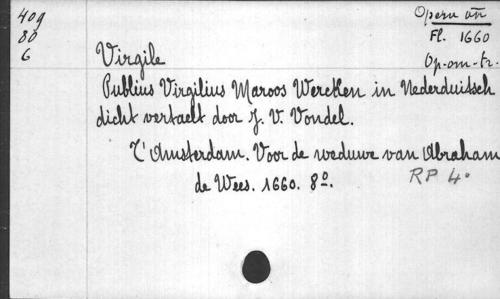 409
80
6
Opera om
Fl. 1660
Op-om-tr.
Virgile
Publius Virgilius Maroos Wercken in Nederduitsch
dicht vertaelt door J. V. Vondel.
T'Amsterdam. Voor de weduwe van Abraham
de Wees. 1660. 8º.
RP 4º